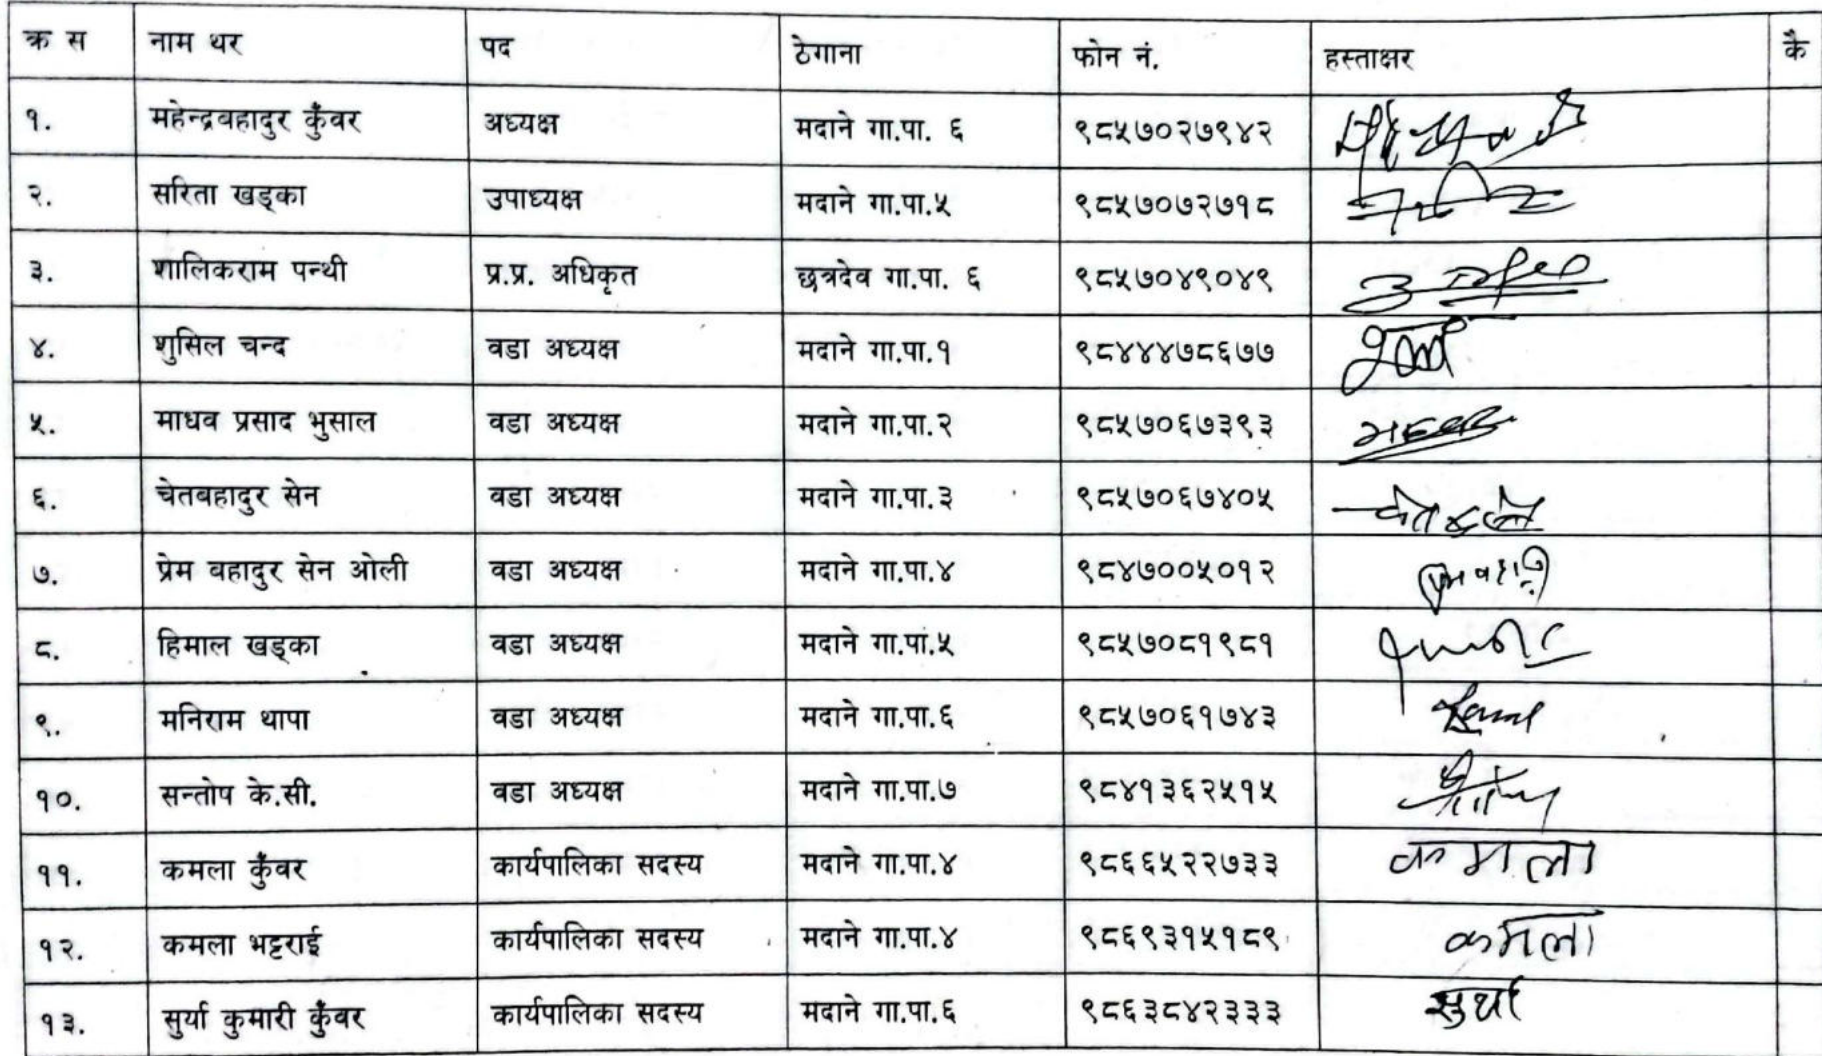 क्र स नाम थर पद ठेगाना फोन नं. हस्ताक्षर कै
१. महेन्द्रबहादुर कुँवर अध्यक्ष मदाने गा.पा. ६ ९८५७०२७९४२
२. सरिता खड्का उपाध्यक्ष मदाने गा.पा.५ ९८५७०७२७१८
३. शालिकराम पन्थी प्र.प्र. अधिकृत छत्रदेव गा.पा. ६ ९८५७०४९०४९
४. शुसिल चन्द वडा अध्यक्ष मदाने गा.पा.१ ९८४४४७८६७७
५. माधव प्रसाद भुसाल वडा अध्यक्ष मदाने गा.पा.२ ९८५७०६७३९३
६. चेतबहादुर सेन वडा अध्यक्ष मदाने गा.पा.३ ९८५७०६७४०५
७. प्रेम बहादुर सेन ओली वडा अध्यक्ष मदाने गा.पा.४ ९८४७००५०१२
८. हिमाल खड्का वडा अध्यक्ष मदाने गा.पा.५ ९८५७०८१९८१
९. मनिराम थापा वडा अध्यक्ष मदाने गा.पा.६ ९८५७०६१७४३
१०. सन्तोष के.सी. वडा अध्यक्ष मदाने गा.पा.७ ९८४१३६२५१५
११. कमला कुँवर कार्यपालिका सदस्य मदाने गा.पा.४ ९८६६५२२७३३ कमला
१२. कमला भट्टराई कार्यपालिका सदस्य मदाने गा.पा.४ ९८६९३१५१८९ कमला
१३. सुर्या कुमारी कुँवर कार्यपालिका सदस्य मदाने गा.पा.६ ९८६३८४२३३३ सुर्या